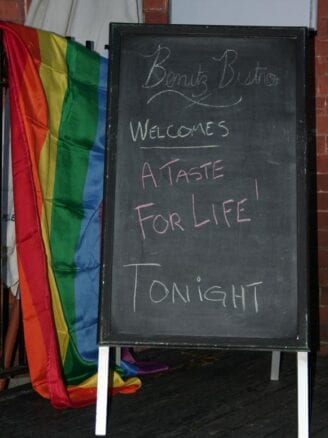 Benitz Bistro
WELCOMES
A TASTE
FOR LIFE!
TONIGHT